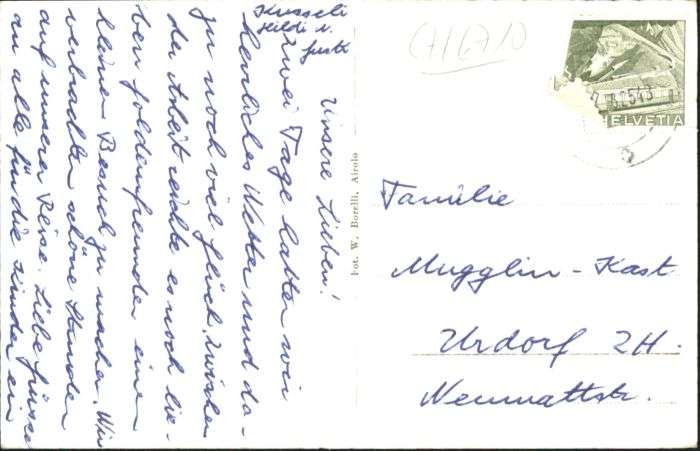 Unsere Lieben!
Zwei Tage hatten wir
herrliches Wetter und da-
zu noch viel Glück. Zwischen
der Arbeit reichte es noch lie-
ben Goldenfreunden einen
kleinen Besuch zu machen. Wir
verbrachten schöne Stunden
auf unserer Reise. Liebe Grüsse
an alle für die Kinder ein
Küsseli
Heidi u.
Fot. W. Borelli, Airolo
HELVETIA
Familie
Mugglin-Kast
Urdorf ZH.
Neumattstr.